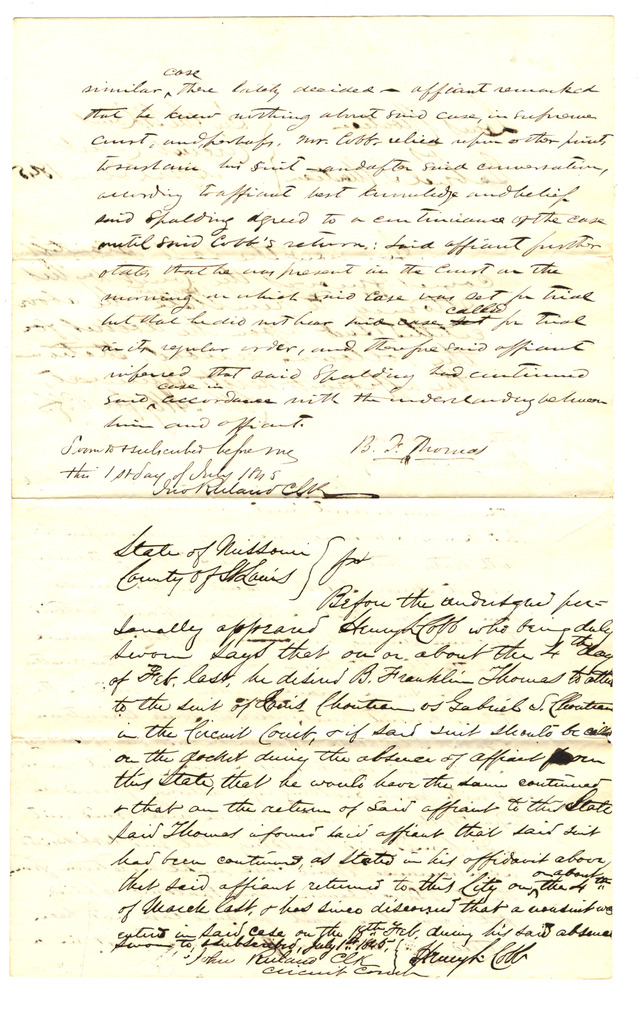 case
similar, there lately decided – affiant remarked
that he knew nothing about said case, in supreme
court, and perhaps, Mr. Cobb relied upon other points
to sustain his suit – and after said conversation,
according to affiant best knowledge and belief
said Spalding agreed to a continuance of the case
until said Cobb's return; Said affiant further
states that he was present in the Court on the
morning on which said case was set for trial
called
but that he did not hear said case set for trial
in its regular order, and therefore said affiant
inferred that said Spalding had continued
case in
said accordance with the understanding between
him and affiant.
Sworn to & subscribed before me B. F. Thomas
this 1st day of July 1845
Jno Ruland Clk
State of Missouri
County of St Louis
Before the undersigned per-
sonally appeared Henry Cobb who being duly
sworn says that on or about the 4th day
of Feb. last, he desired B. Franklin Thomas to attend
to the suit of Chouteau vs Gabriel S. Chouteau
in the Circuit Court, & if said suit should be called
on the docket during the absence of affiant from
this State, that he would have the same continued
& that on the return of said affiant to this State
said Thomas informed said affiant that said suit
had been continued, as stated in his affidavit above,
on or about
that said affiant returned to this City on the 4th
of March last, & has since discovered that a nonsuit was
entered in said case on the 18th Feb. during his said absence
sworn to & subscribed, July 1st 1845 Henry Cobb
John Ruland Clk
circuit court